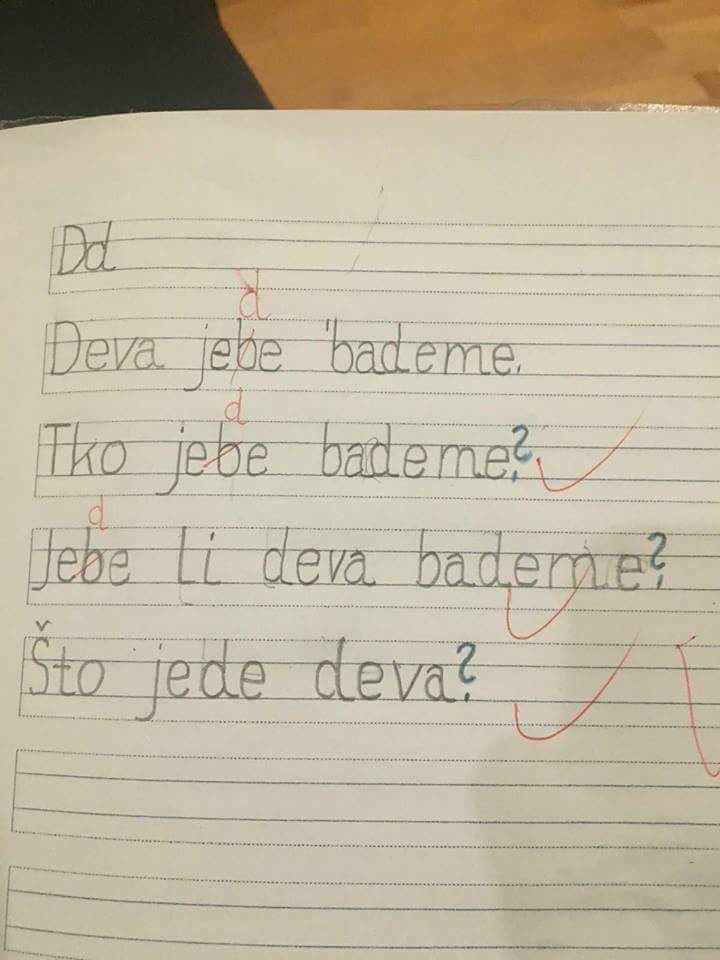 Dd
d
Deva jebe bademe.
d
Tko jebe bademe?
d
Jebe li deva bademe?
Što jede deva?